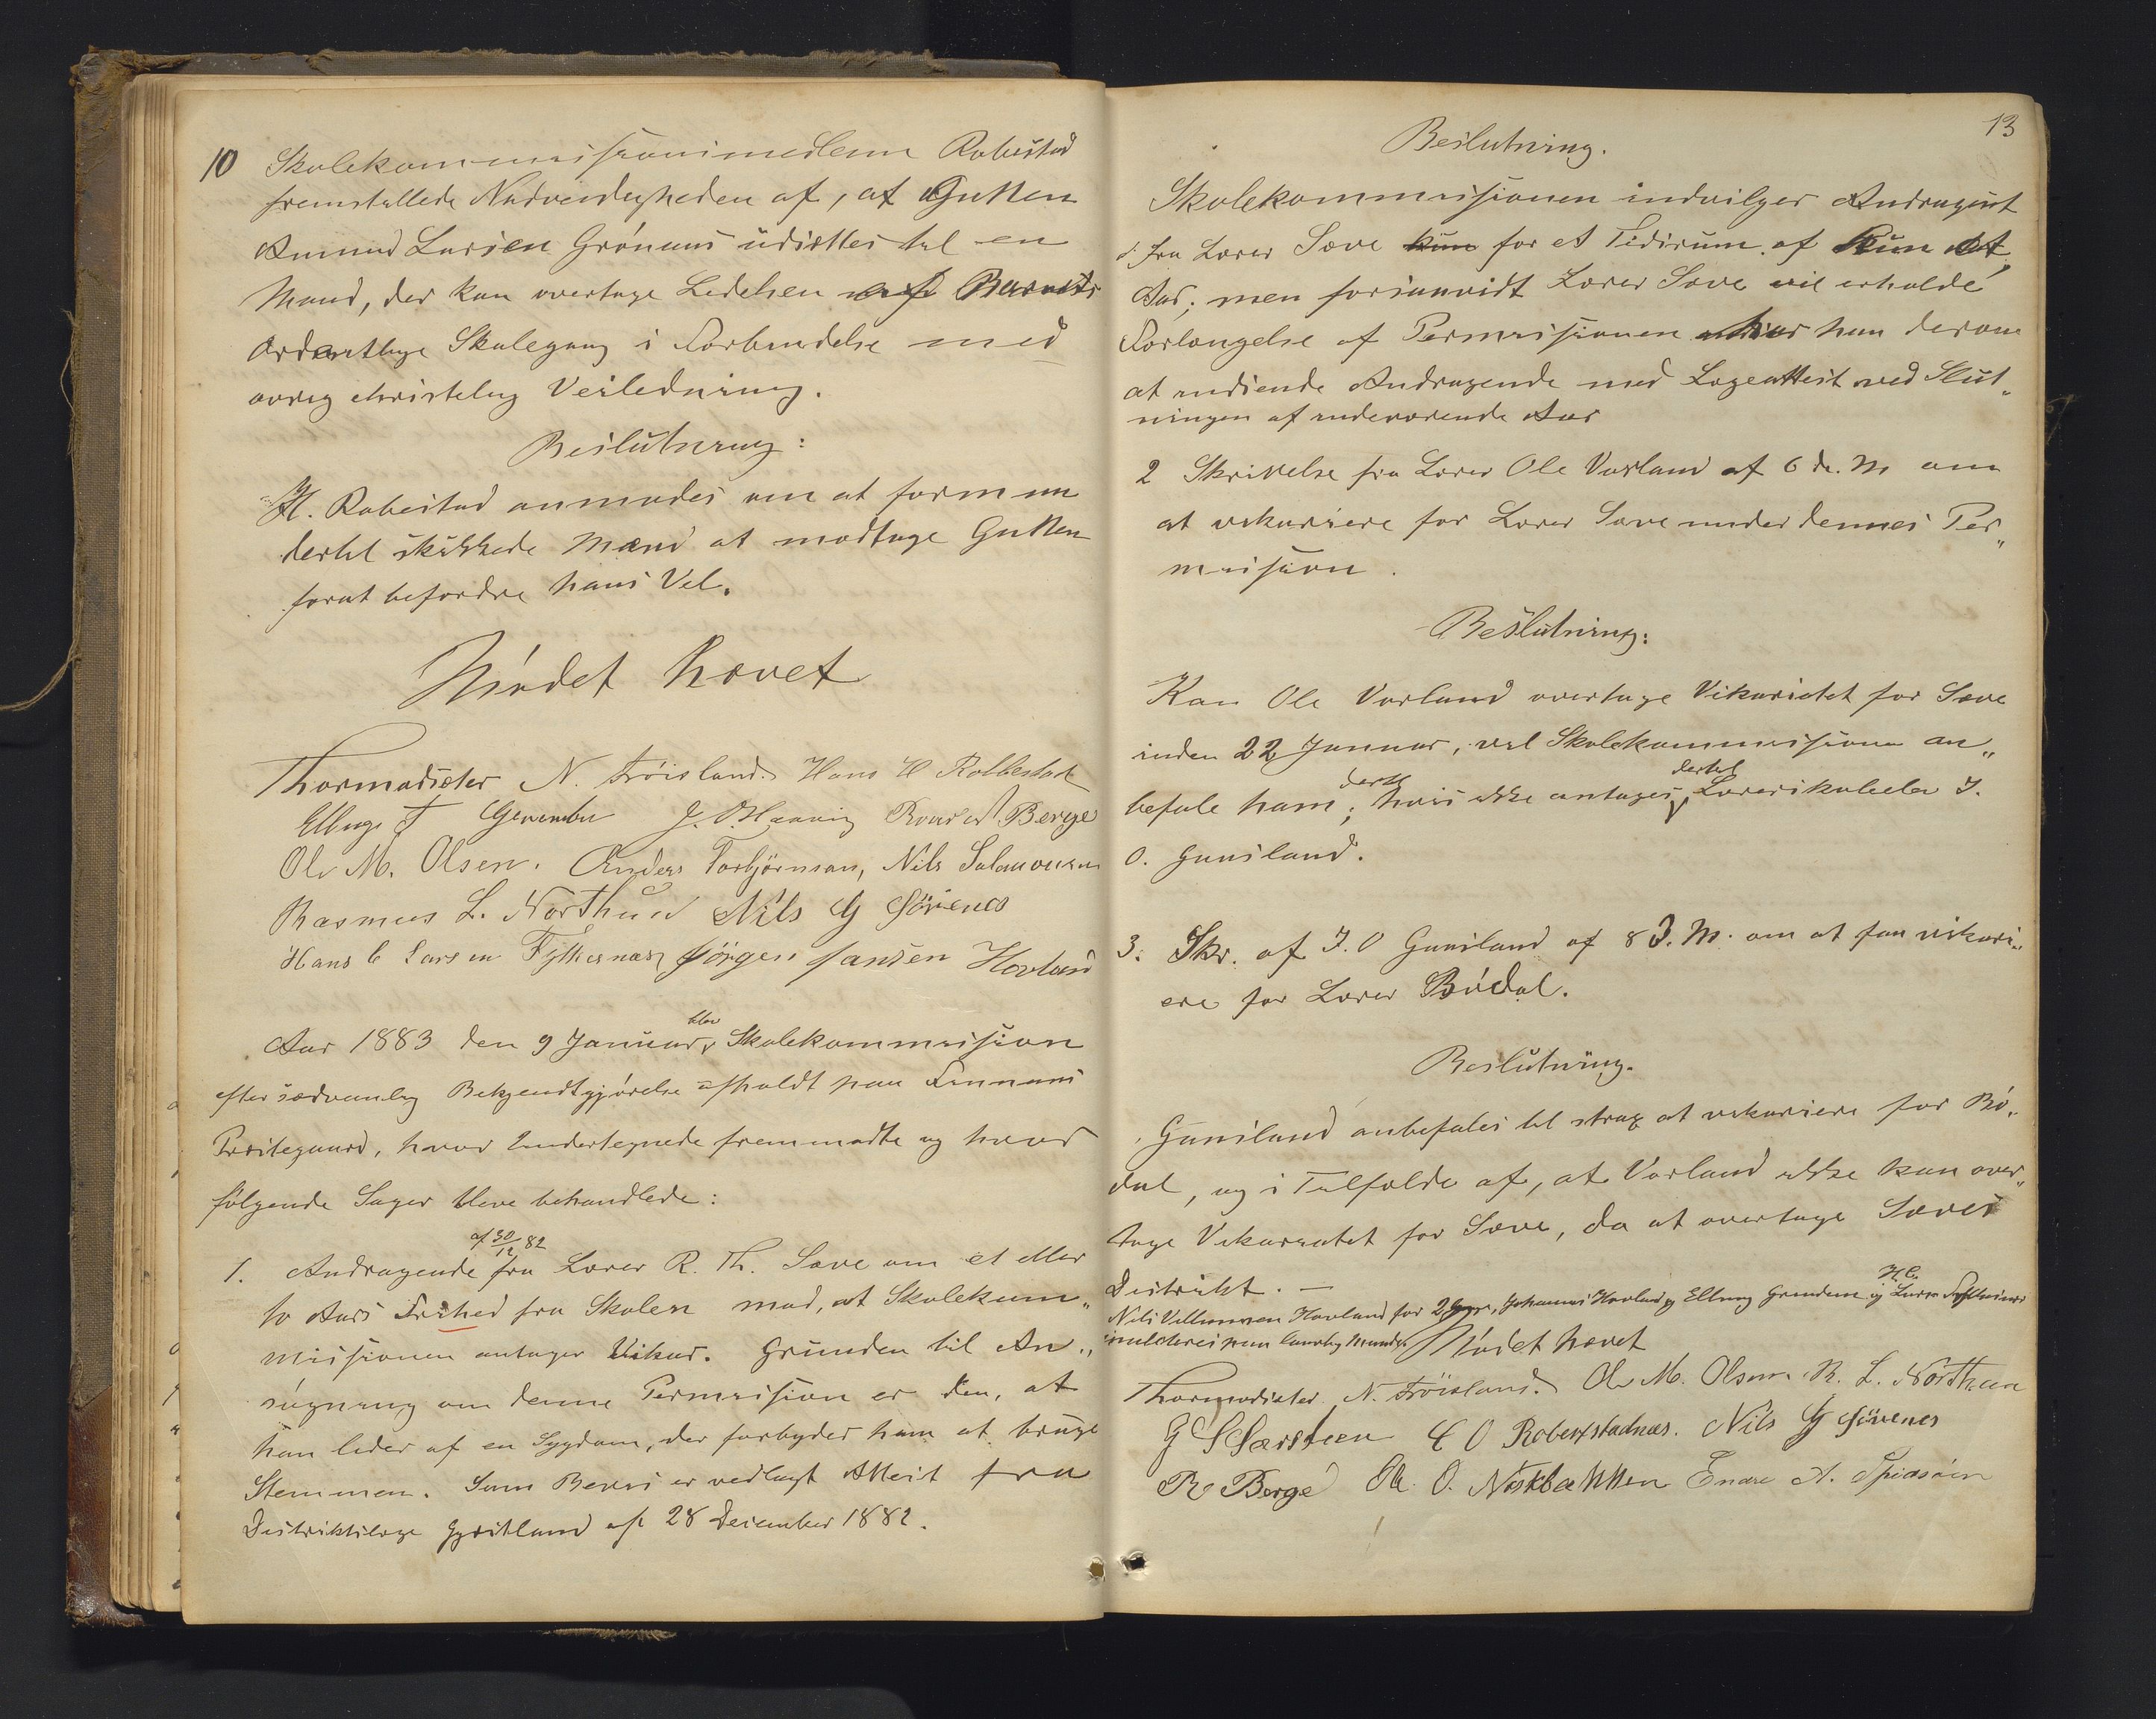 10 Skolekommissionsmedlem Robestad
fremstillede Nødvendigheden af, at Gutten
Amund Larsen Grønaas udsættes til en
Mand, der kan overtage Ledelsen af Barnets
ordentlige Skolegang i Forbindelse med
øvrig christelig Veiledning.
Beslutning:
H. Robestad anmodes om at formaa en
dertil skikkede Mand at modtage Gutten
forat befordre hans Vel.
Mødet hævet
Thormodsæter N. Frøisland. Hans H Robbestad
Elling J Grinden J. O. Berge
Ole M. Olsen. Anders Torbjørnson, Nils Salamonsen
Rasmus L. Northun Nils G Søvenes
Hans C Larsen Fylkesnæs Jørgen Jansen Hovland
Aar 1883 den 9 Januar blev Skolekommission
efter sædvanlig Bekjendtgjørelse afholdt paa Finnaas
Præstegaard, hvor Undertegnede fremmødte og hvor
følgende Sager bleve behandlede:
1. Andragende af 30/12 82 fra Lærer R. Th. Sæve om et eller
to Aars Frihed fra Skolen mod, at Skolekom„
missionen antager Vikar. Grunden til An„
søgning om denne Permission er den, at
han lider af en Sygdom, der forbyder ham at bruge
Stemmen. Som Bevis er vedlagt Attest fra
Distriktslæge Gjestland af 28 December 1882.
13
Beslutning.
Skolekommissionen indvilger Andragent
fra Lærer Sæve kun for et Tidsrum af kun et
Aar; men forsaavidt Lærer Sæve vil erholde
Forlængelse af Permissionen har han derom
at indsende Andragende med Lægeattest ved Slut„
ningen af indeværende Aar
2 Skrivelse fra Lærer Ole Vorland af 6 ds. M om
at vikariere for Lærer Sæve under dennes Per„
mission.
Beslutning:
Kan Ole Vorland overtage Vikariatet for Sæve
inden 22 Januar, vil Skolekommissionen an„
befale ham dertil; hvis ikke antages dertil Lærerskoleelev J.
O. Gunsland.
3. Skr. af J. O Gunsland af 8 d. M. om at faa vikari„
ere for Lærer Bødal.
Beslutning.
Gunsland anbefales til strax at vikariere for Bø„
dal, og i Tilfælde af, at Vorland ikke kan over„
tage Vikariatet for Sæve, da at overtage Sæves
Distrikt. —
Nils Villumsen Hovland for 2 Gange, Johannes Hovland og Elling Grinden og H. C. Larsen Fylkesnes
mulcteres paa lovlig Maade. Mødet hævet
Thormodsæter N. Frøisland. Ole M. Olsen. R. L. Northun
G S Særsteen O Robestadnæs. Nils G Søvenes
R Berge Ole O. Endre A. Spidsøen